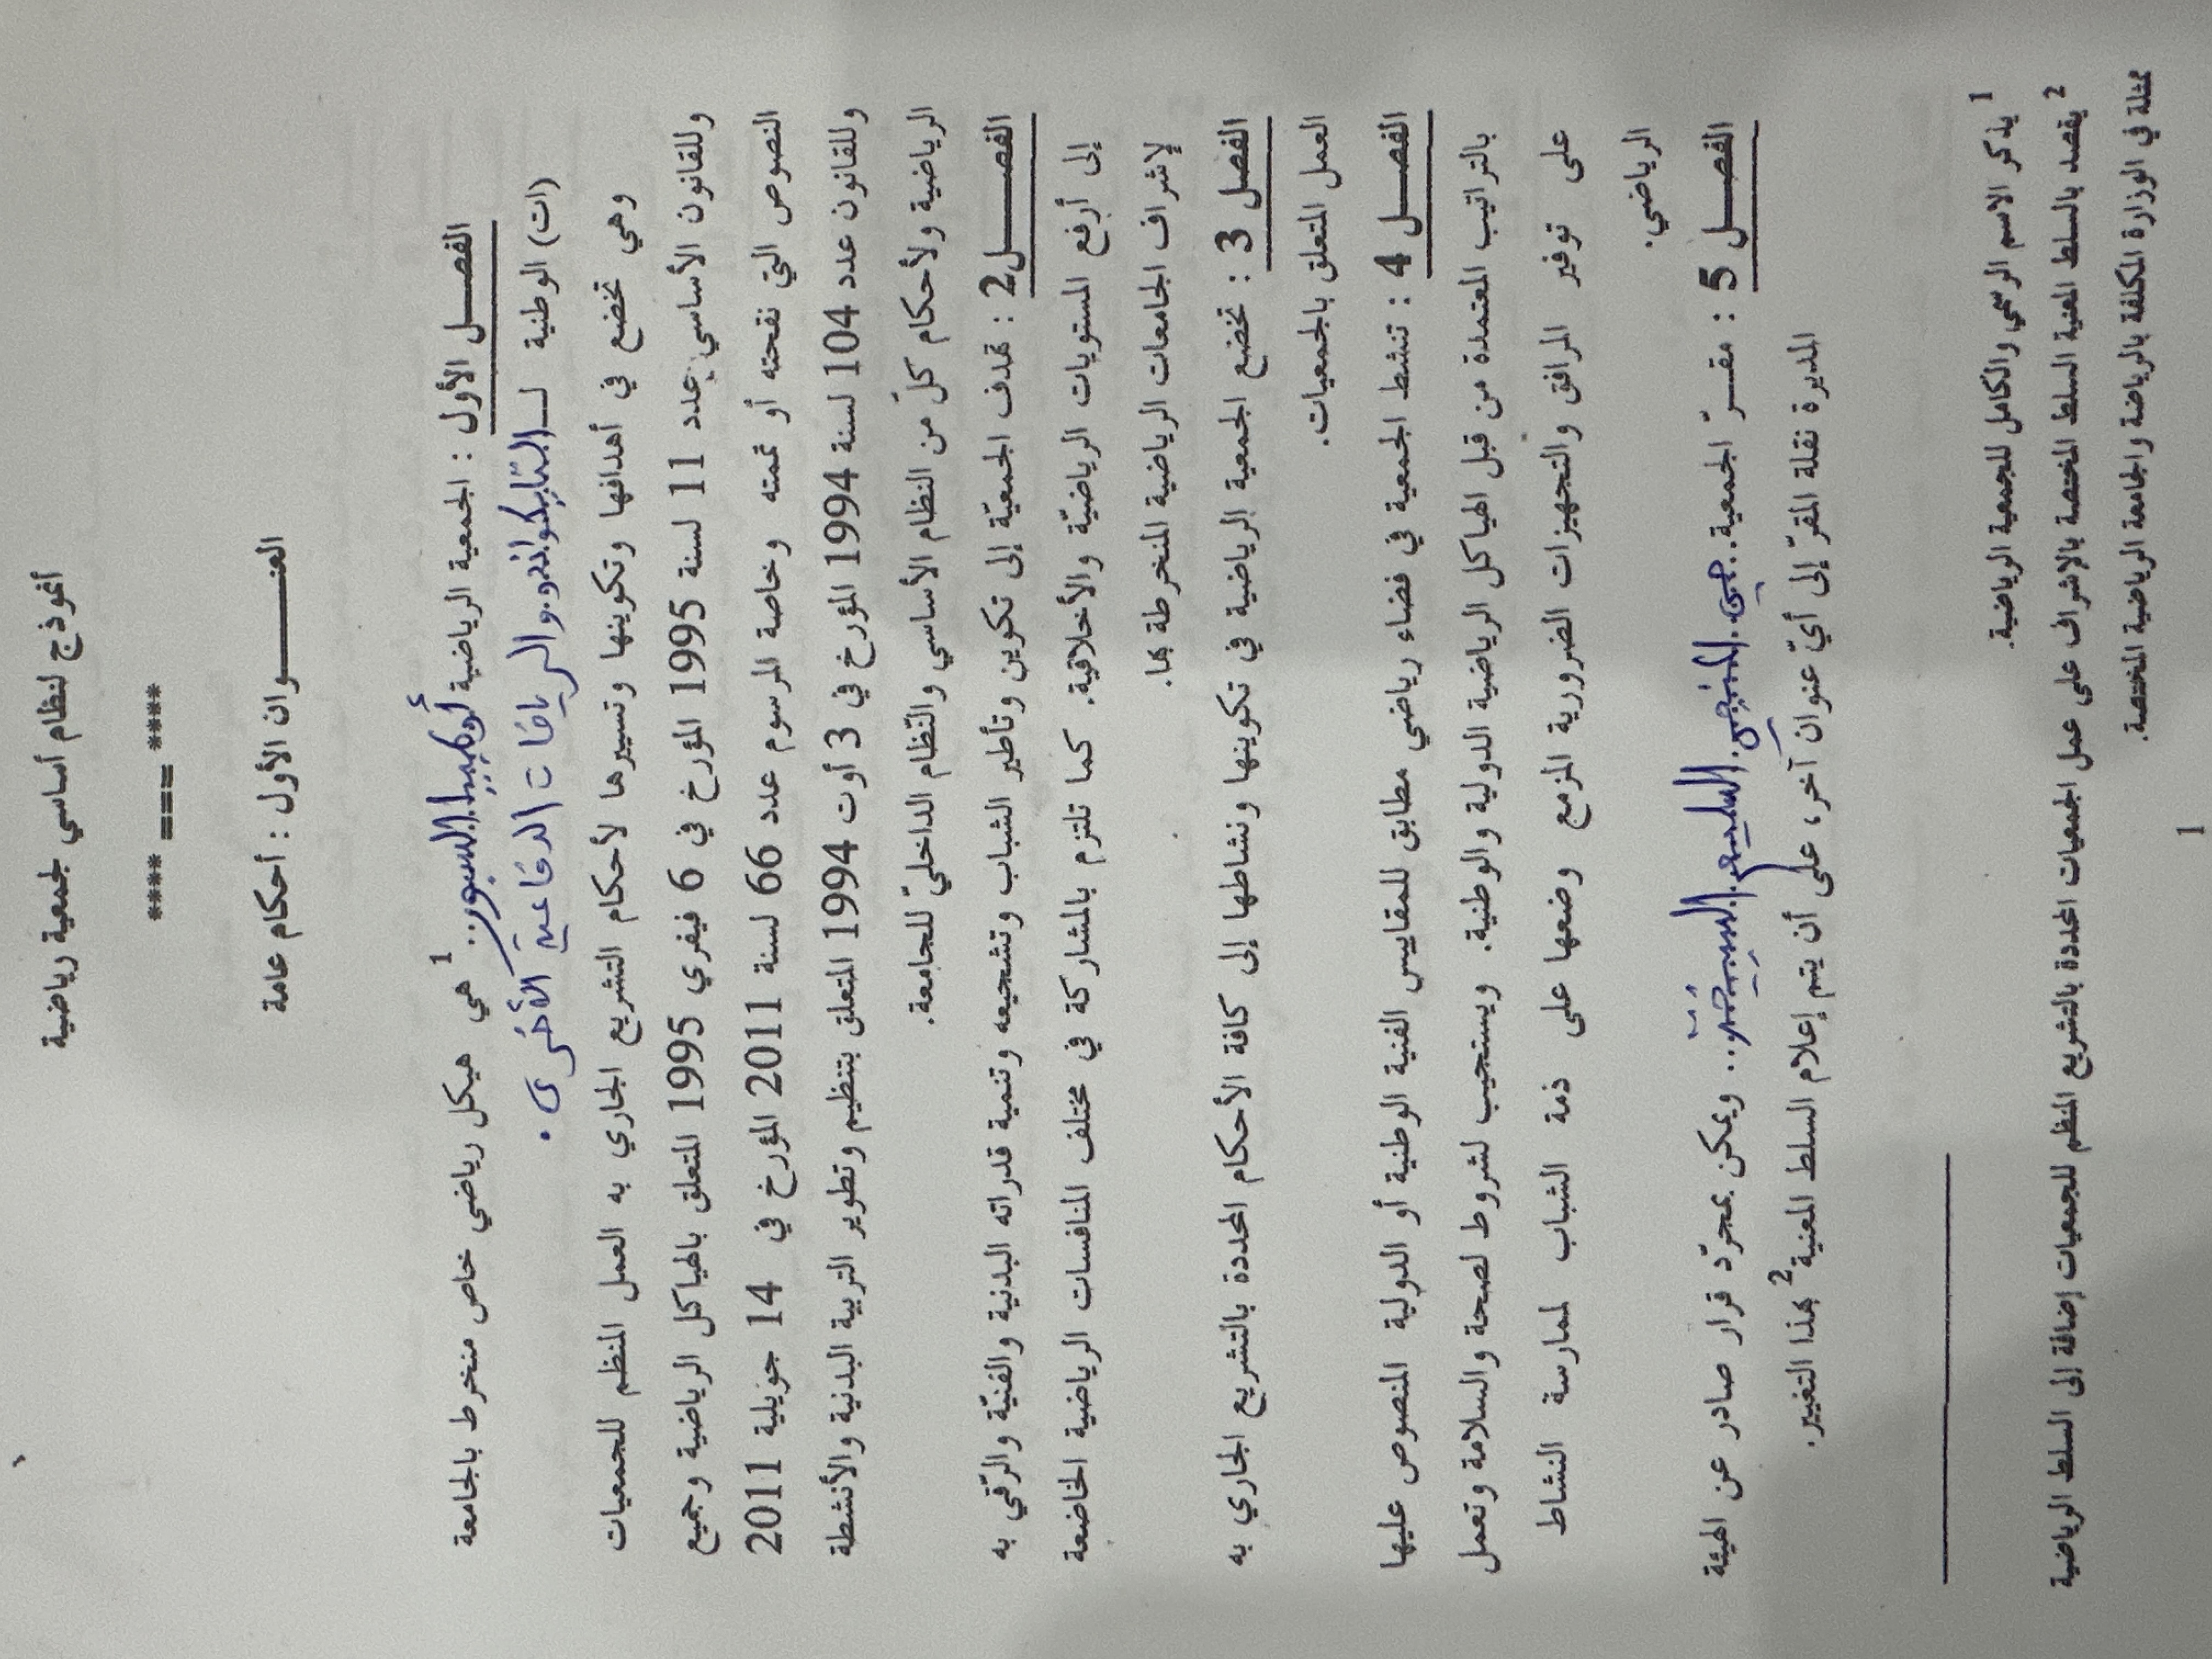 أنموذج لنظام أساسي لجمعية رياضية
**** === ****
العنـــــــوان الأول : أحكام عامة
الفصـــل الأول : الجمعية الرياضية أولمبيا السبور..¹ هي هيكل رياضي خاص منخرط بالجامعة
(ات) الوطنية لـ التايكواندو والرياضات الدفاعية الأخرى.
وهي تخضع في أهدافها وتكوينها وتسييرها لأحكام التشريع الجاري به العمل المنظم للجمعيات
وللقانون الأساسي عدد 11 لسنة 1995 المؤرخ في 6 فيفري 1995 المتعلق بالهياكل الرياضية وجميع
النصوص التي نقحته أو تممته وخاصة المرسوم عدد 66 لسنة 2011 المؤرخ في 14 جويلية 2011
وللقانون عدد 104 لسنة 1994 المؤرخ في 3 أوت 1994 المتعلق بتنظيم وتطوير التربية البدنية والأنشطة
الرياضية ولأحكام كلّ من النظام الأساسي والنّظام الداخليّ للجامعة.
الفصــــل2 : تهدف الجمعيّة إلى تكوين وتأطير الشباب وتشجيعه وتنمية قدراته البدنية والفنيّة والرّقي به
إلى أرفع المستويات الرياضيّة والأخلاقية. كما تلتزم بالمشاركة في مختلف المنافسات الرياضية الخاضعة
لإشراف الجامعات الرياضية المنخرطة بها.
الفصل 3 : تخضع الجمعية الرياضية في تكوينها ونشاطها إلى كافة الأحكام المحددة بالتشريع الجاري به
العمل المتعلق بالجمعيات.
الفصـــل 4 : تنشط الجمعية في فضاء رياضي مطابق للمقاييس الفنية الوطنية أو الدولية المنصوص عليها
بالتراتيب المعتمدة من قبل الهياكل الرياضية الدولية والوطنية. ويستجيب لشروط لصحة والسلامة وتعمل
على توفير المرافق والتجهيزات الضرورية المزمع وضعها على ذمة الشباب لممارسة النشاط
الرياضي.
الفصـــل 5 : مقــرّ الجمعية..حي المنجي السليم .. ويمكن بمجرّد قرار صادر عن الهيئة
المديرة نقلة المقرّ إلى أيّ عنوان آخر، على أن يتم إعلام السلط المعنية² بهذا التغيير.
¹ يذكر الاسم الرسمي والكامل للجمعية الرياضية.
² يقصد بالسلط المعنية السلط المختصة بالإشراف على عمل الجمعيات المحددة بالتشريع المنظم للجمعيات إضافة إلى السلط الرياضية
ممثلة في الوزارة المكلفة بالرياضة والجامعة الرياضية المختصة.
1